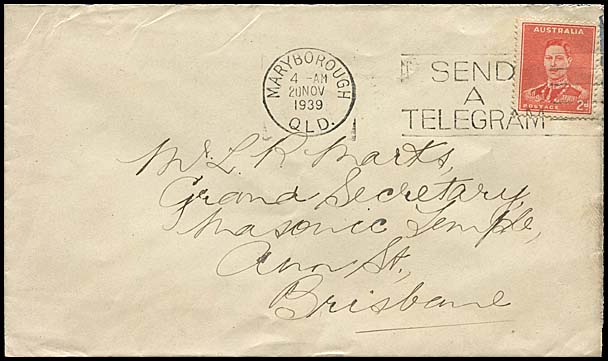 MARYBOROUGH
4 - AM
20 NOV
1939
QLD.
SEND
A
TELEGRAM
AUSTRALIA
POSTAGE 2d
Mr. L. P. Marks,
Grand Secretary,
Masonic Temple,
Ann St.,
Brisbane